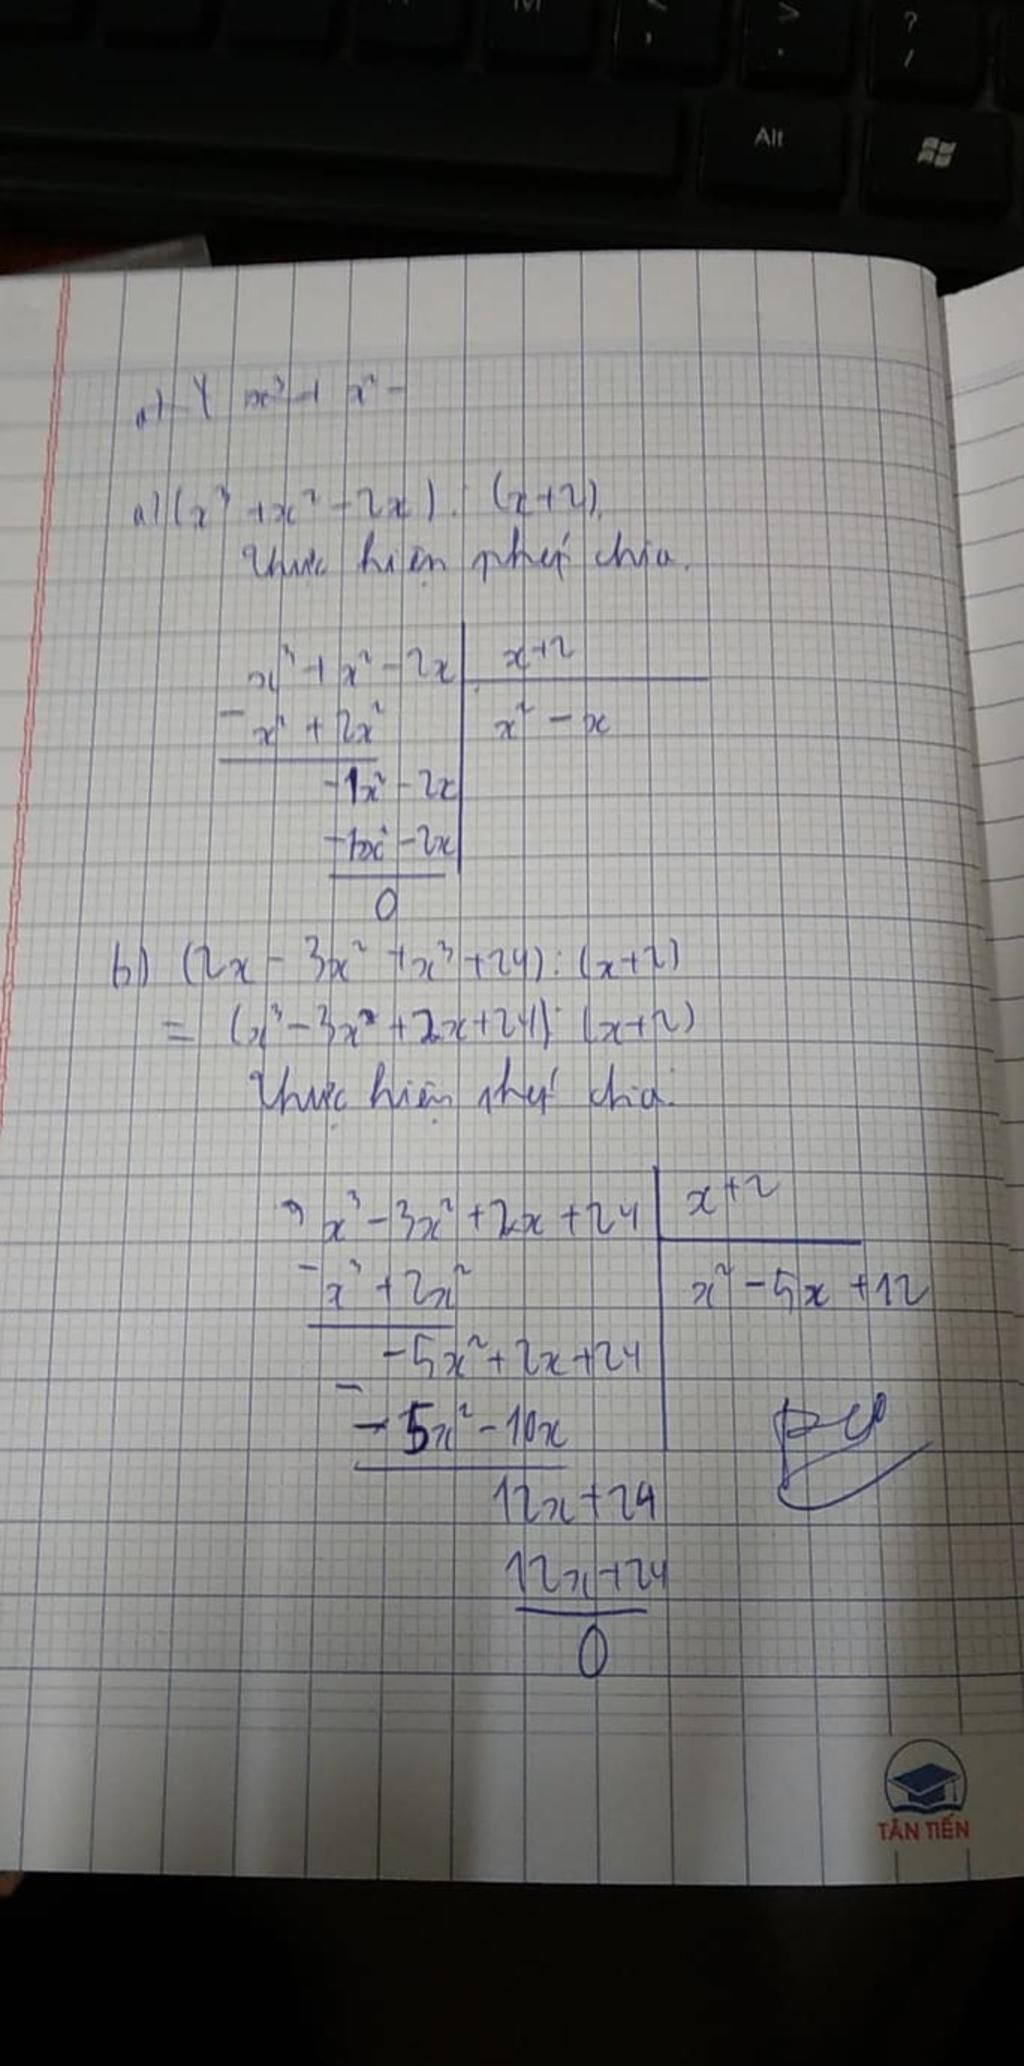 < ,
> .
? /
Alt
x³ + x² -
a) (x³ + x² - 2x) : (x+2)
Thực hiện phép chia.
x³ + x² - 2x | x+2
- x³ + 2x² | x² - x
-1x² - 2x
-1x² - 2x
0
b) (2x - 3x² + x³ + 24) : (x+2)
= (x³ - 3x² + 2x + 24) : (x+2)
Thực hiện phép chia:
x³ - 3x² + 2x + 24 | x+2
- x³ + 2x² | x² - 5x + 12
-5x² + 2x + 24
- -5x² - 10x
12x + 24
12x + 24
0
TÂN TIẾN